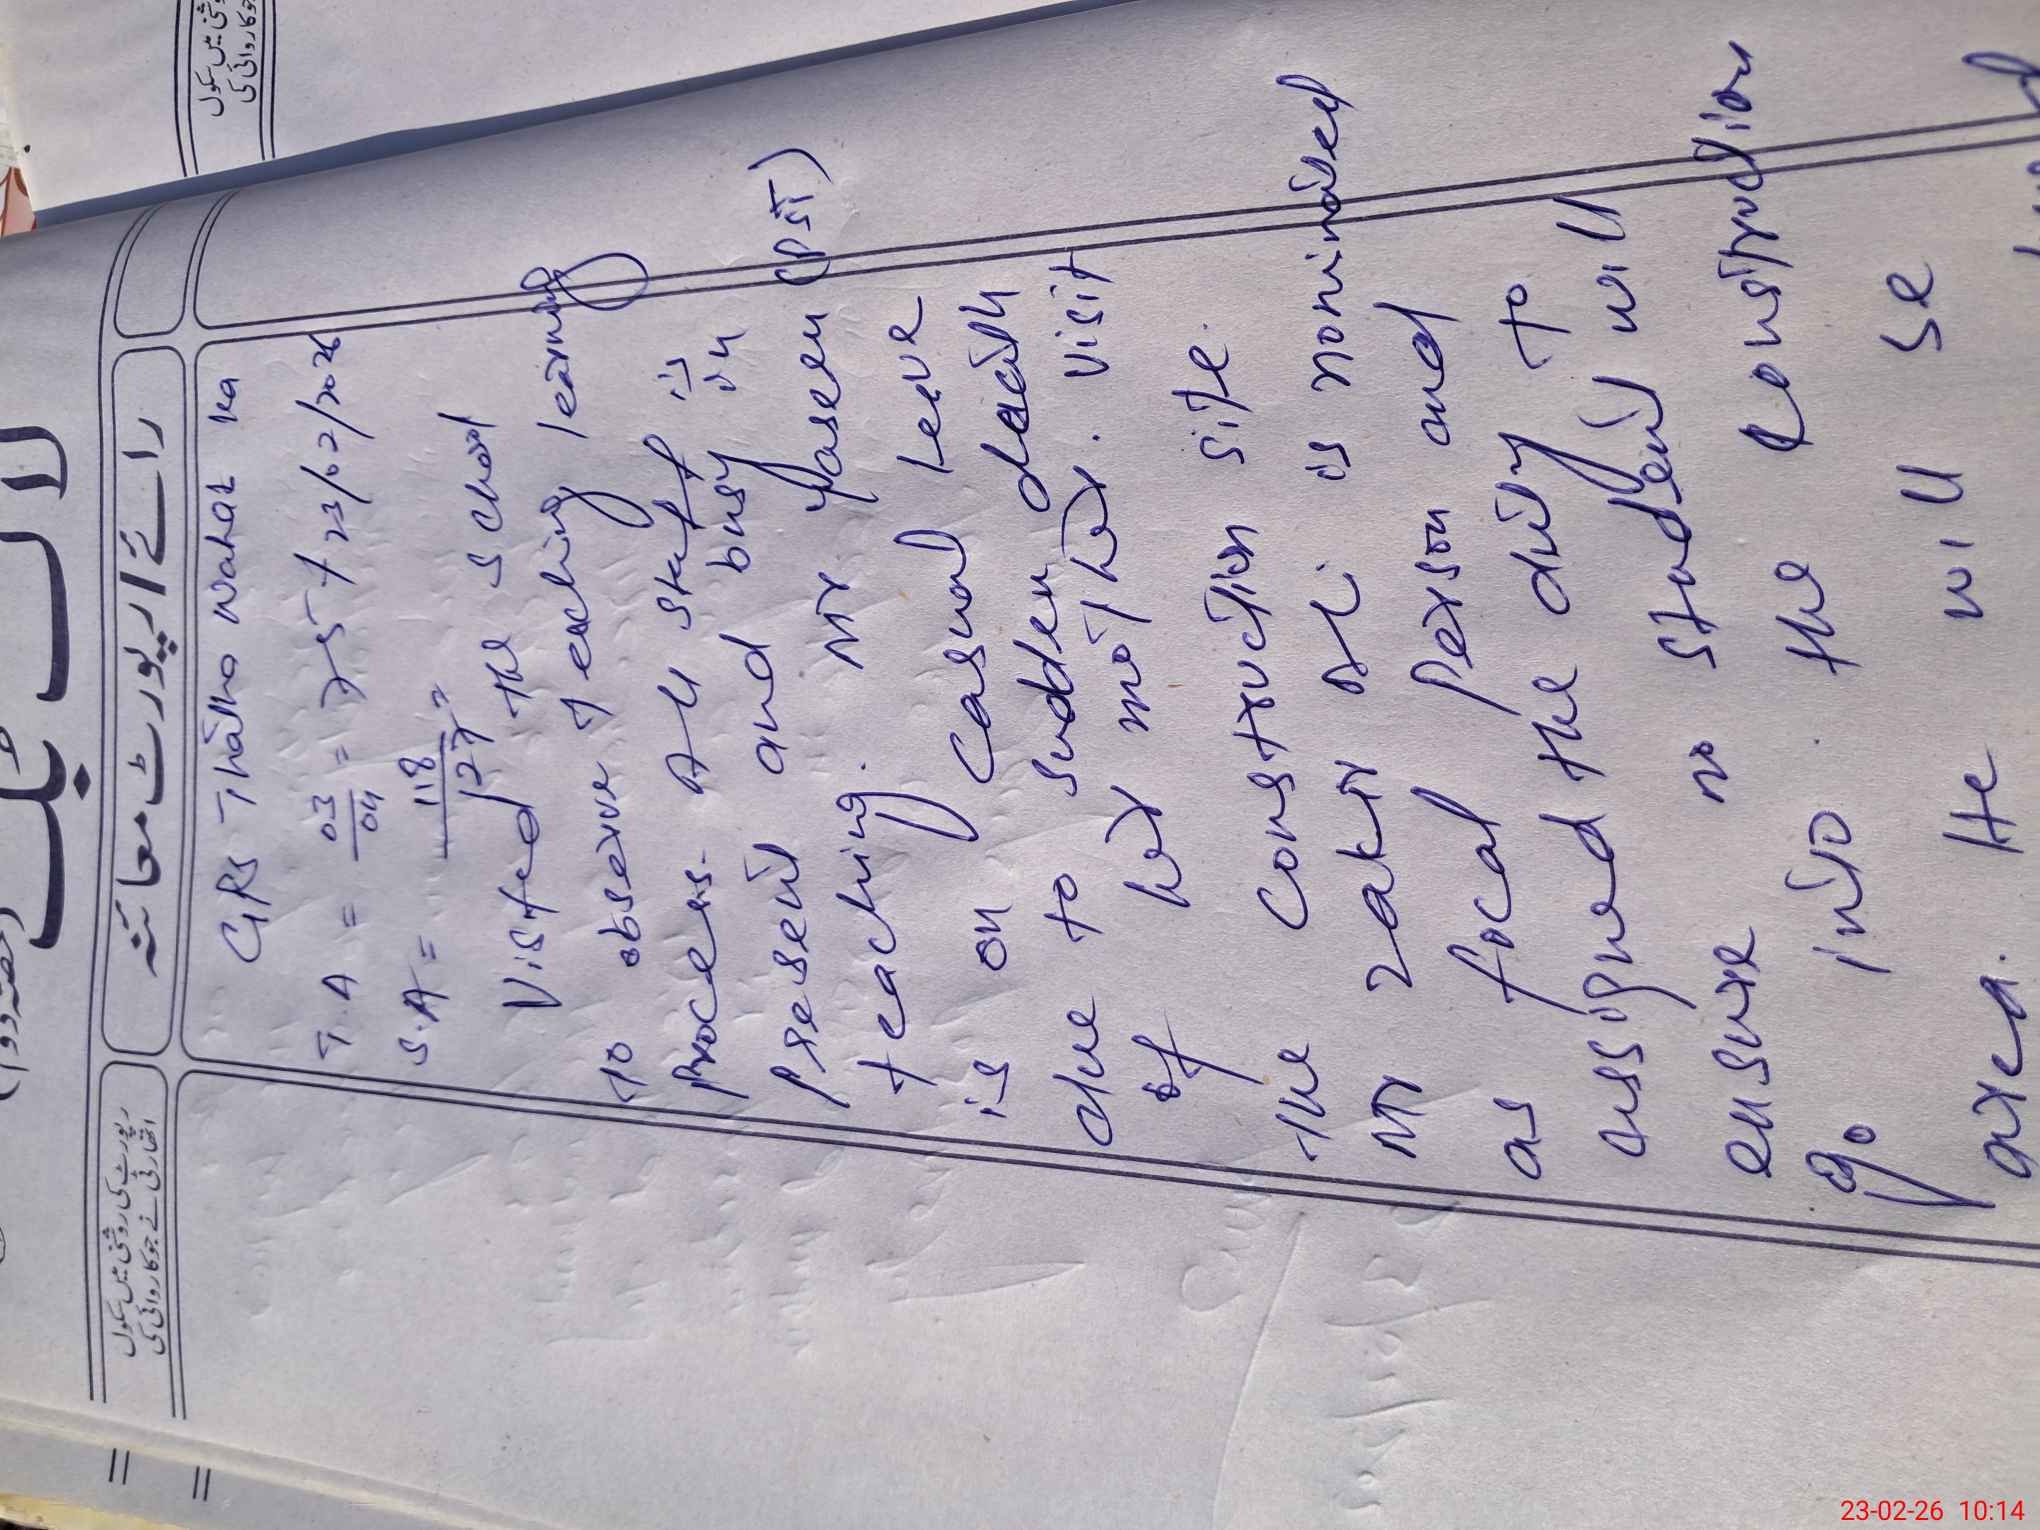 لال
رائے / رپورٹ معائنہ
رپورٹ کی روشنی میں سکول
اتھارٹی نے جو کاروائی کی
GPS Thatha wahaz ka
T.A = 03/04 = 75 % 23/02/2026
S.A = 118/127
Visited the school
to observe Teaching learning
process. All staff is
present and busy in
teaching. Mr Yaseen (PST)
is on casual leave
due to sudden death
of her mother. Visit
the construction site.
Mr Zakir Ali is nominated
as focal person and
assigned the duty to
ensure no student will
go into the construction
area. He will be
روشنی میں سکول
جو کاروائی کی
23-02-26 10:14